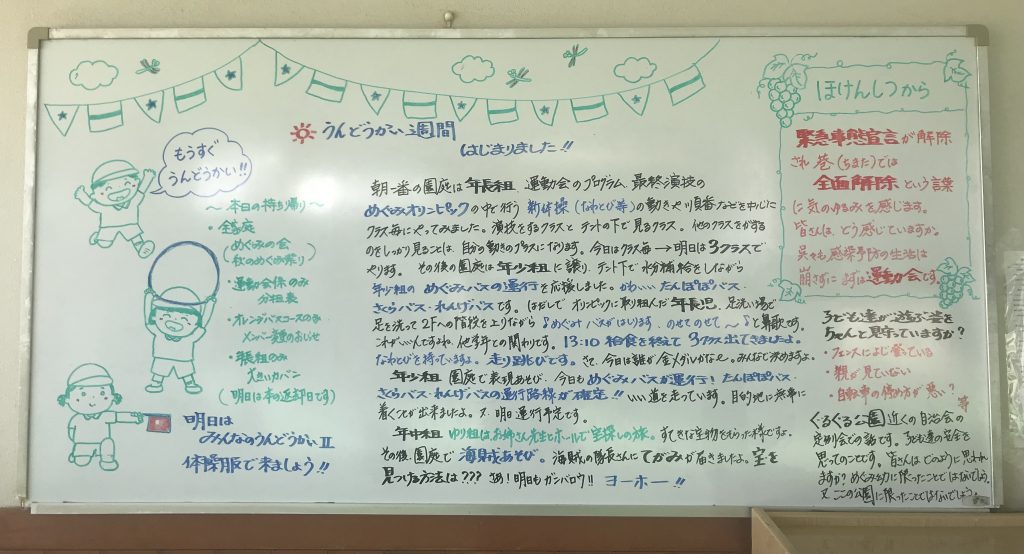 もうすぐ
うんどうかい!!
〜本日の持ち帰り〜
・全家庭
(めぐみの会
秋のめぐみ祭り)
・運動会係のみ
分担表
・オレンジバスコースのみ
メンバー変更のおしらせ
・年長組のみ
大きいカバン
(明日は本の返却日です)
明日は
みんなのうんどうかいⅡ
体操服で来ましょう!!
うんどうかい週間
はじまりました!!
朝一番の園庭は年長組 運動会のプログラム、最終演技の
めぐみオリンピックの中で行う 新体操(なわとび等)の動きや順番などを中心に
クラス毎にやってみました。演技をするクラスと テントの下で見るクラス。他のクラスをがする
のをしっかり見ることは、自分の動きのプラスになります。今日はクラス毎→明日は3クラスで
やります。その後の園庭は年少組に譲り、テント下で水分補給をしながら
年少組の めぐみバスの運行を応援しました。かわいい たんぽぽバス・
さくらバス・れんげバスです。はだしで オリンピックに取り組んだ年長児、足洗い場で
足を洗って2Fへの階段を上りながら ♪めぐみバスがはしります、のせてのせて〜♪と鼻歌です。
これがいいんですよね。他学年との関わりです。13:10 給食を終えて3クラス出てきましたよ。
なわとびを持っていますよ。走り跳びです。さて、今日は誰が金メダルかなぁ〜みんなで決めますよ。
年少組 園庭で表現あそび、今日もめぐみバスが運行!たんぽぽバス・
さくらバス・れんげバスの運行路線が確定!!いい道を走っています。目的地に無事に
着くことが出来ましたよ。又、明日運行予定です。
年中組 ゆり組はお姉さん先生とホールで宝探しの旅。すてきな宝物をもらった様ですよ。
その後、園庭で海賊あそび。海賊の隊長さんにてがみが届きましたよ。宝を
見つける方法は??? さあ!明日もガンバロウ!! ヨーホー!!
ほけんしつから
緊急事態宣言が解除
され 巷(ちまた)では
全面解除という言葉
に気のゆるみを感じます。
皆さんは、どう感じていますか。
呉々も感染予防の生活は
崩さずに まずは運動会です。
子ども達が遊ぶ姿を
ちゃんと見守っていますか?
・フェンスによじ登っている
・親が見ていない
・自転車の停め方が悪い? 等
ぐるぐる公園近くの自治会の
定例会での話です。子ども達の安全を
思ってのことです。皆さんは どのように思われ
ますか?めぐみ幼に限ったことではないでしょう。
又、ここの公園に限ったことではないでしょう。